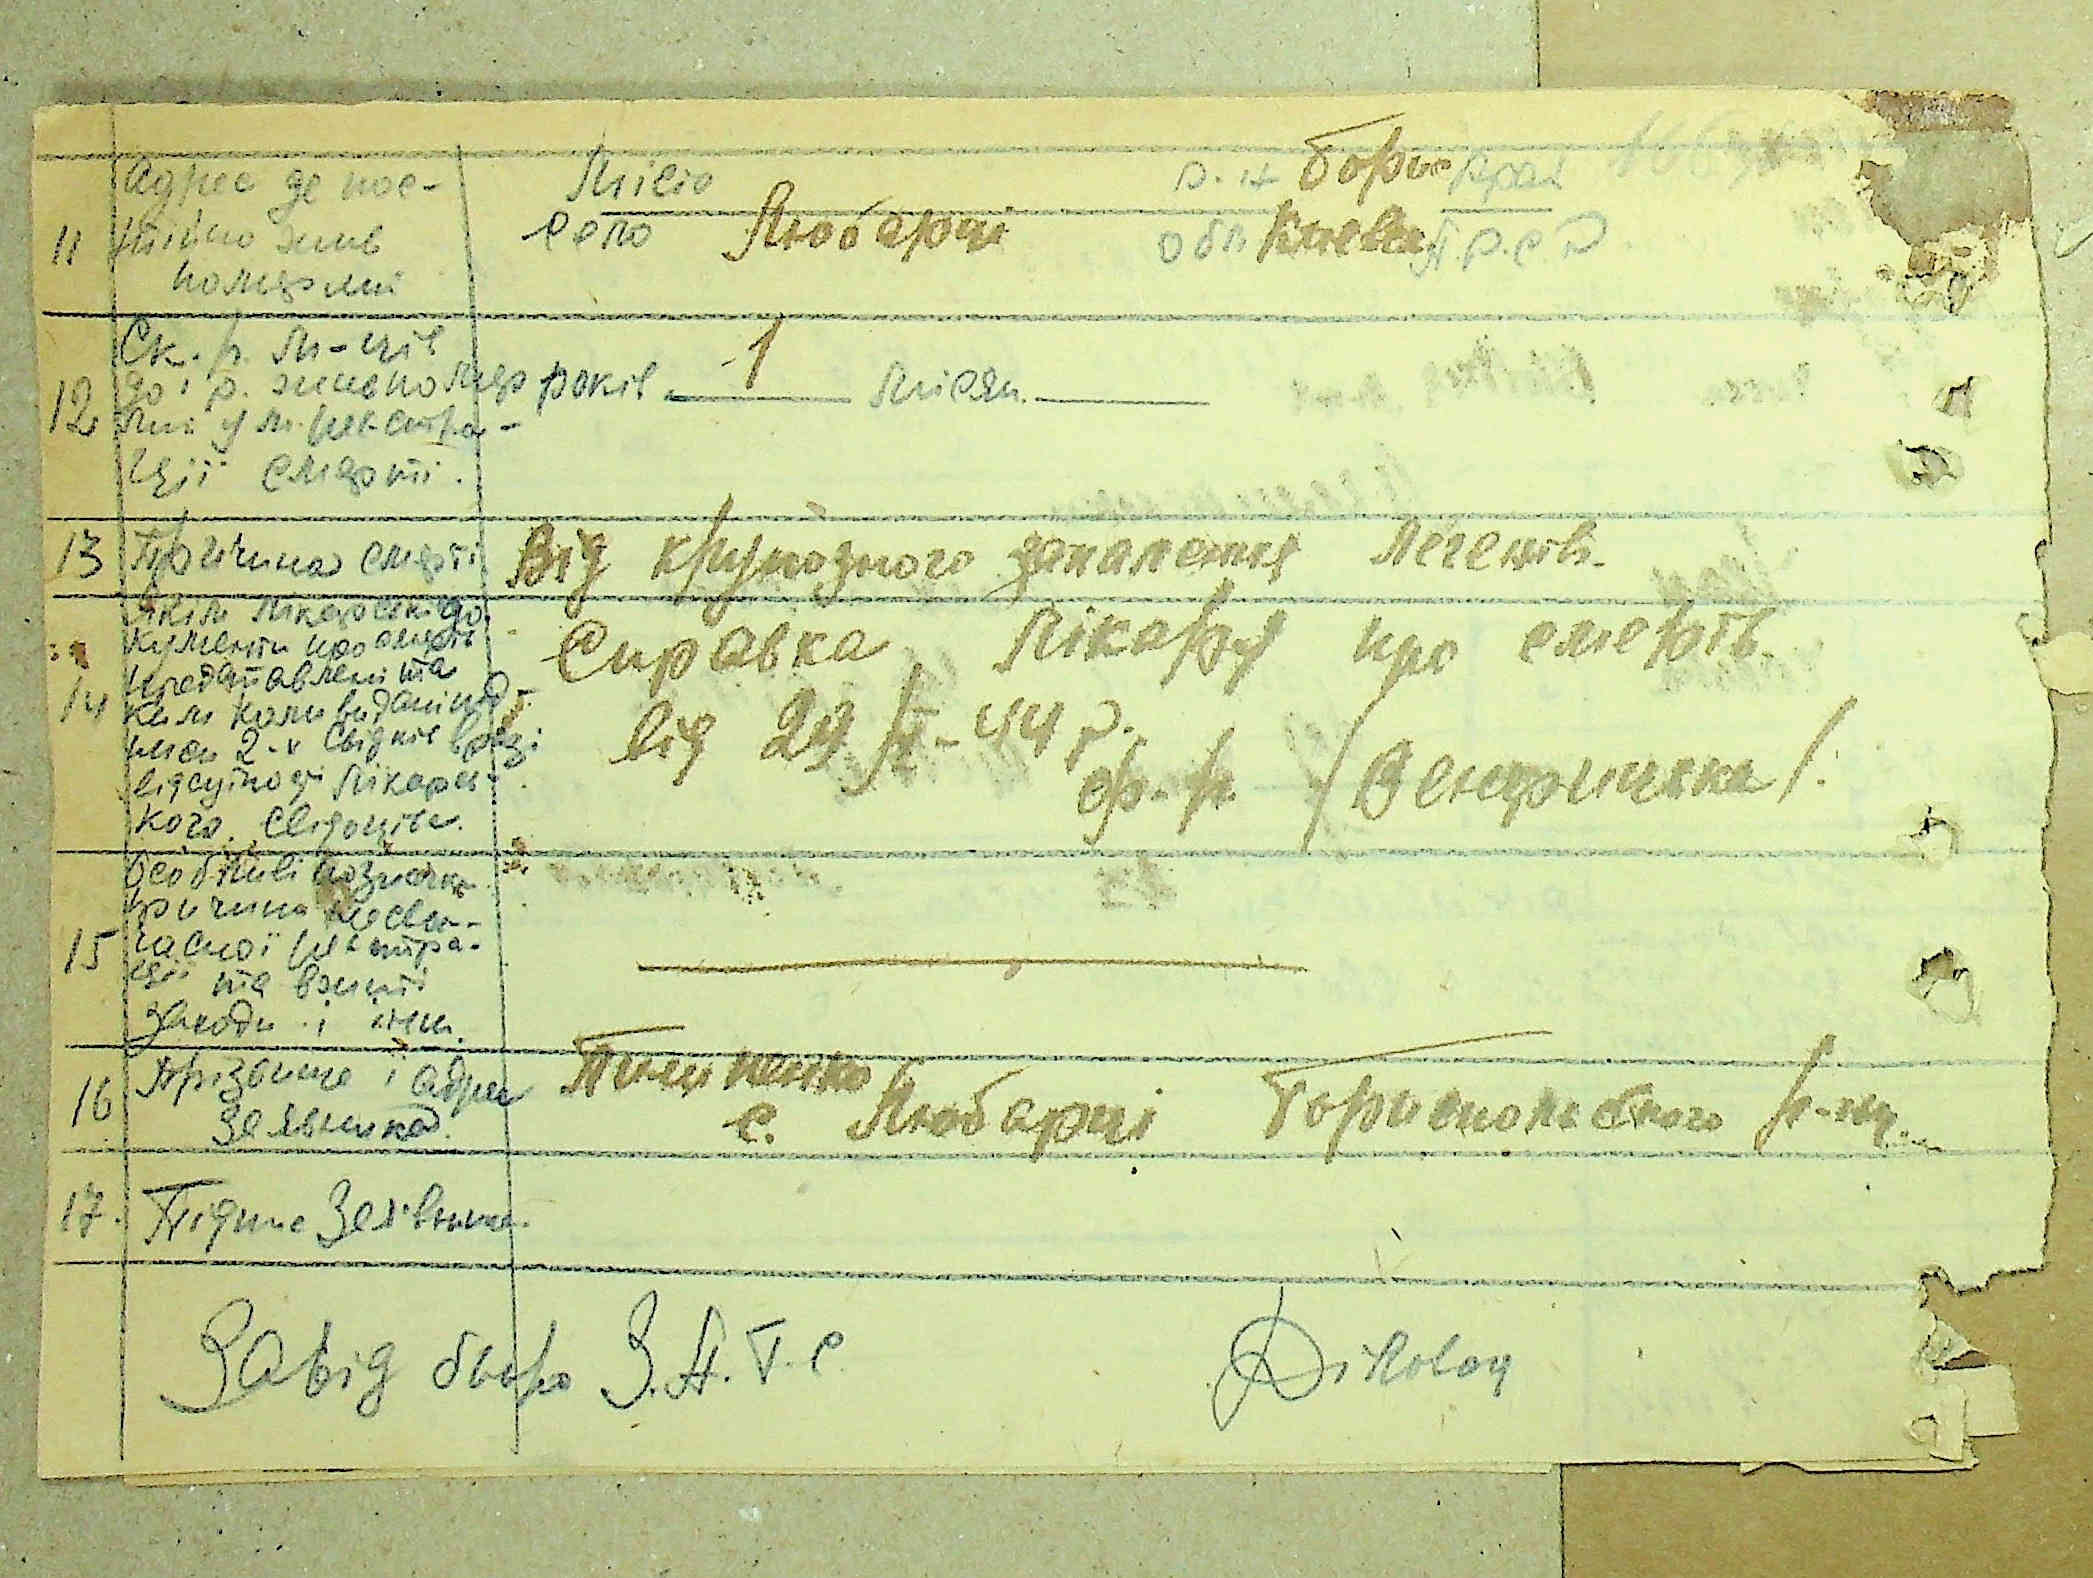 11 Адрес де пос-
тійно жив
померлий
Місто р.-н Борис край
село Любарці обл Києвск Р.С.Р.
12 Ск. р. м-ців
до 1 р. жив помер
лий у м. реєстра-
ції смерті.
років 1 місяц.
13 Причина смерті Від крупозного запалення легенів.
14 Яким лікарським до-
кументи про смерть
представлені та
ким коли видані
2-х свідків в разі
відсутності лікарсь-
кого свідоцтва.
Справка лікаря про смерть
від 29/ІІ-44 р.
15 Особливі позначки
причина несво-
часної реєстра-
ції та вжиті
заходи і інш.
16 Прізвище і адрес
заявника
с. Любарці Бориспольського р-ну.
17. Підпис Заявника.
Завід бюро З.А.Г.С.